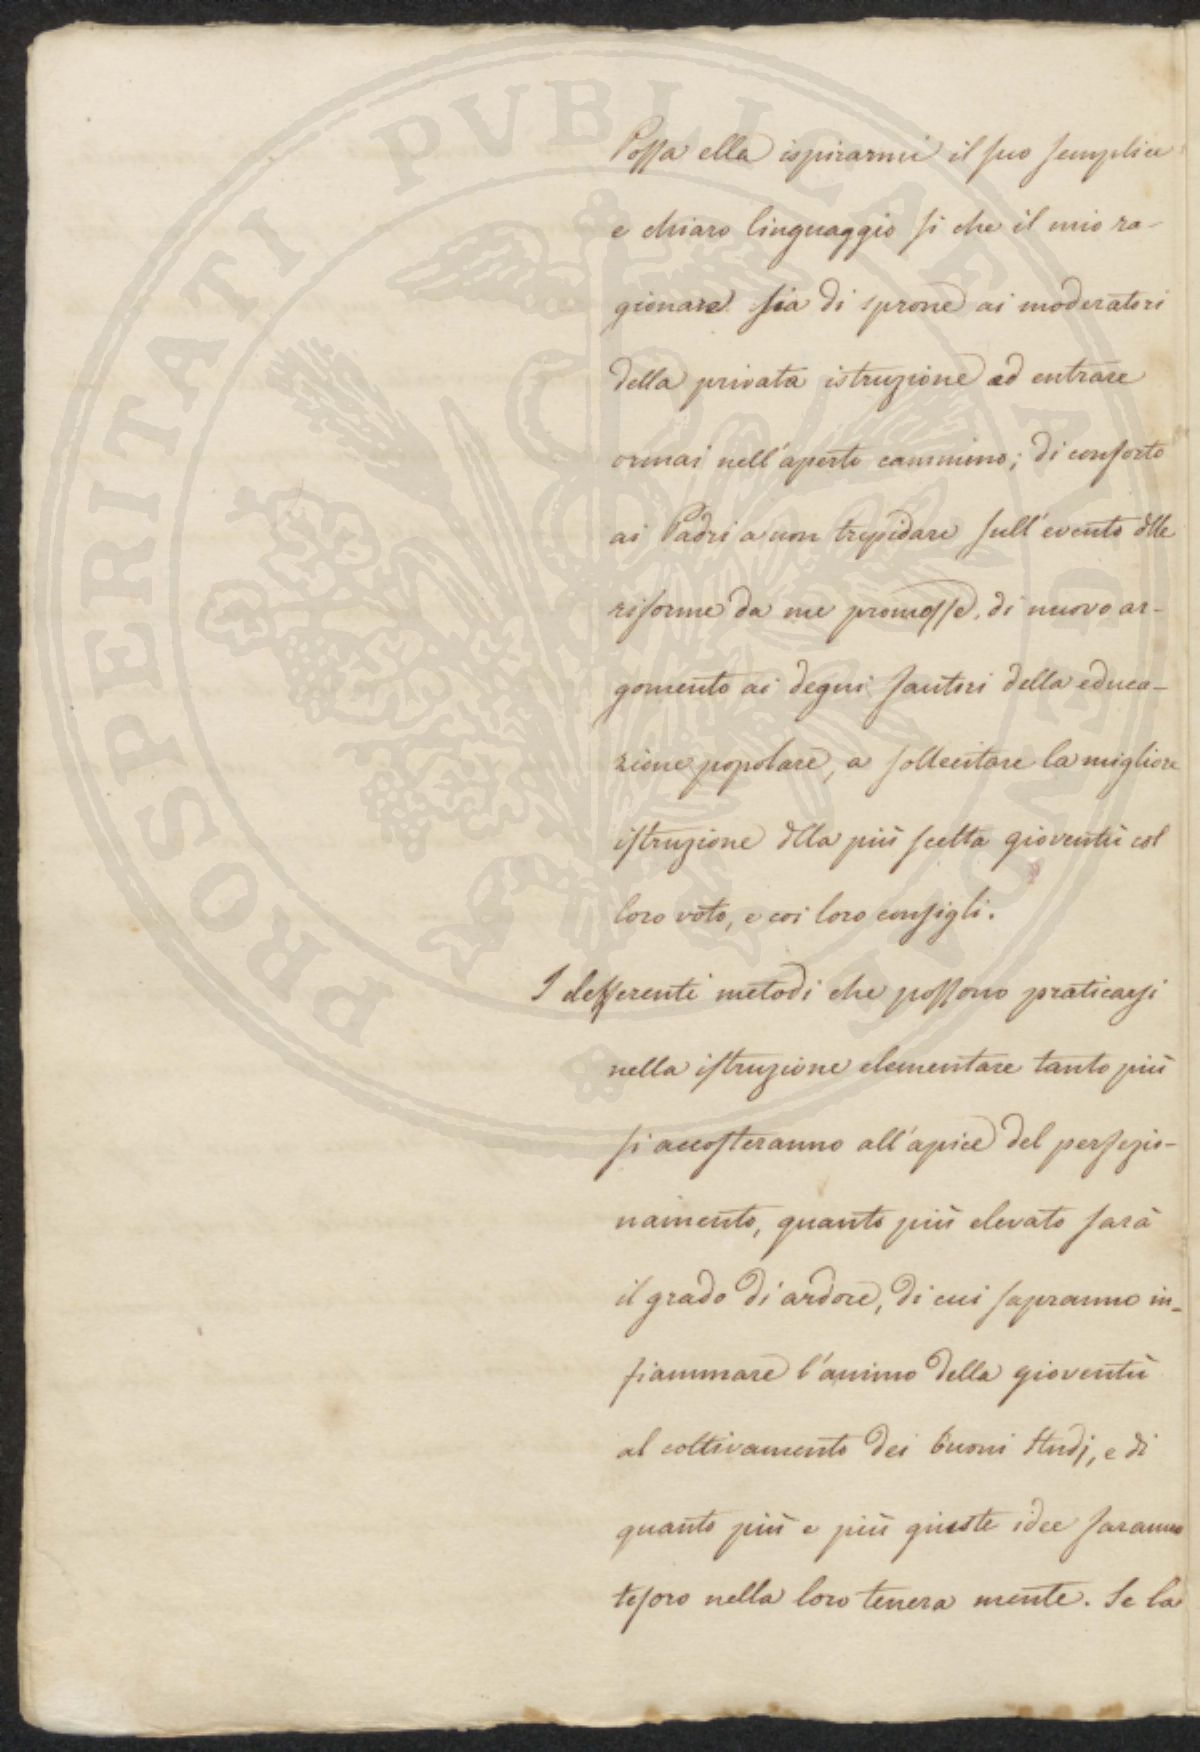 Possa ella ispirarmi il suo semplice
e chiaro linguaggio si che il mio ra-
gionare sia di sprone ai moderatori
della privata istruzione ad entrare
ormai nell'aperto cammino; di conforto
ai Padri a non trepidare sull'evento dlle
riforme da me promosse, di nuovo ar-
gomento ai degni fautori della educa-
zione popolare, a sollecitare la migliore
istruzione dlla più scelta gioventù col
loro voto, e coi loro consigli.
I differenti metodi che possono praticarsi
nella istruzione elementare tanto più
si accosteranno all'apice del perfezio-
namento, quanto più elevato sarà
il grado di ardore, di cui sapranno in-
fiammare l'animo della gioventù
al coltivamento dei buoni studj, e di
quanto più e più giuste idee faranno
tesoro nella loro tenera mente. Se la
PROSPERITATI PVBLICAE AVGENDAE